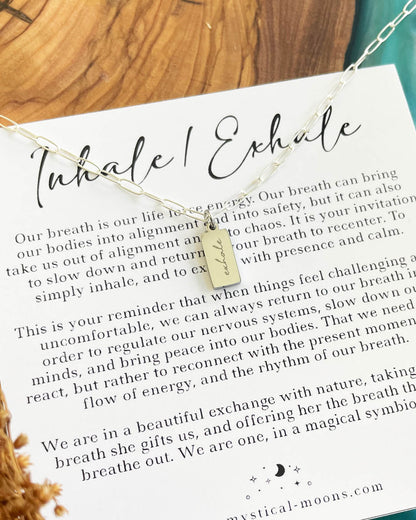 Inhale | Exhale
Our breath is our life energy. Our breath can bring
our bodies into alignment and into safety, but it can also
take us out of alignment and to chaos. It is your invitation
to slow down and return your breath to recenter. To
simply inhale, and to with presence and calm.
exhale
This is your reminder that when things feel challenging
uncomfortable, we can always return to our breath in
order to regulate our nervous systems, slow down our
minds, and bring peace into our bodies. That we need
react, but rather to reconnect with the present moment
flow of energy, and the rhythm of our breath.
We are in a beautiful exchange with nature, taking
breath she gifts us, and offering her the breath
breathe out. We are one, in a magical
mystical-moons.com